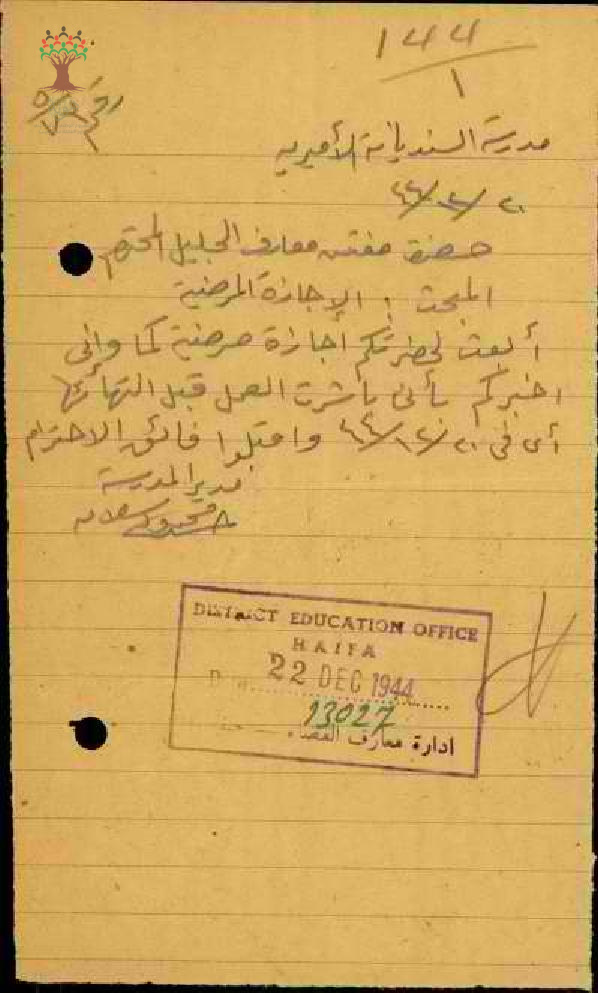 ١٤٤
١
رقم ٥/٧٦
مدرسة السنديانة الأميرية
٢٠/١٢/٤٤
حضرة مفتش معارف الجليل المحترم
المبحث : الإجازة المرضية
أبعث لحضرتكم اجازة مرضية كما واني
اخبركم بأني باشرت العمل قبل انتهائها
أي في ٢٠/١٢/٤٤ واقبلوا فائق الاحترام
مدير المدرسة
DISTRICT EDUCATION OFFICE
HAIFA
22 DEC 1944
13027
ادارة معارف القضاء